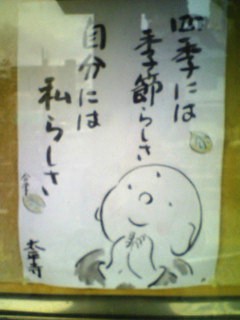 四季には
季節らしさ
自分には
私らしさ